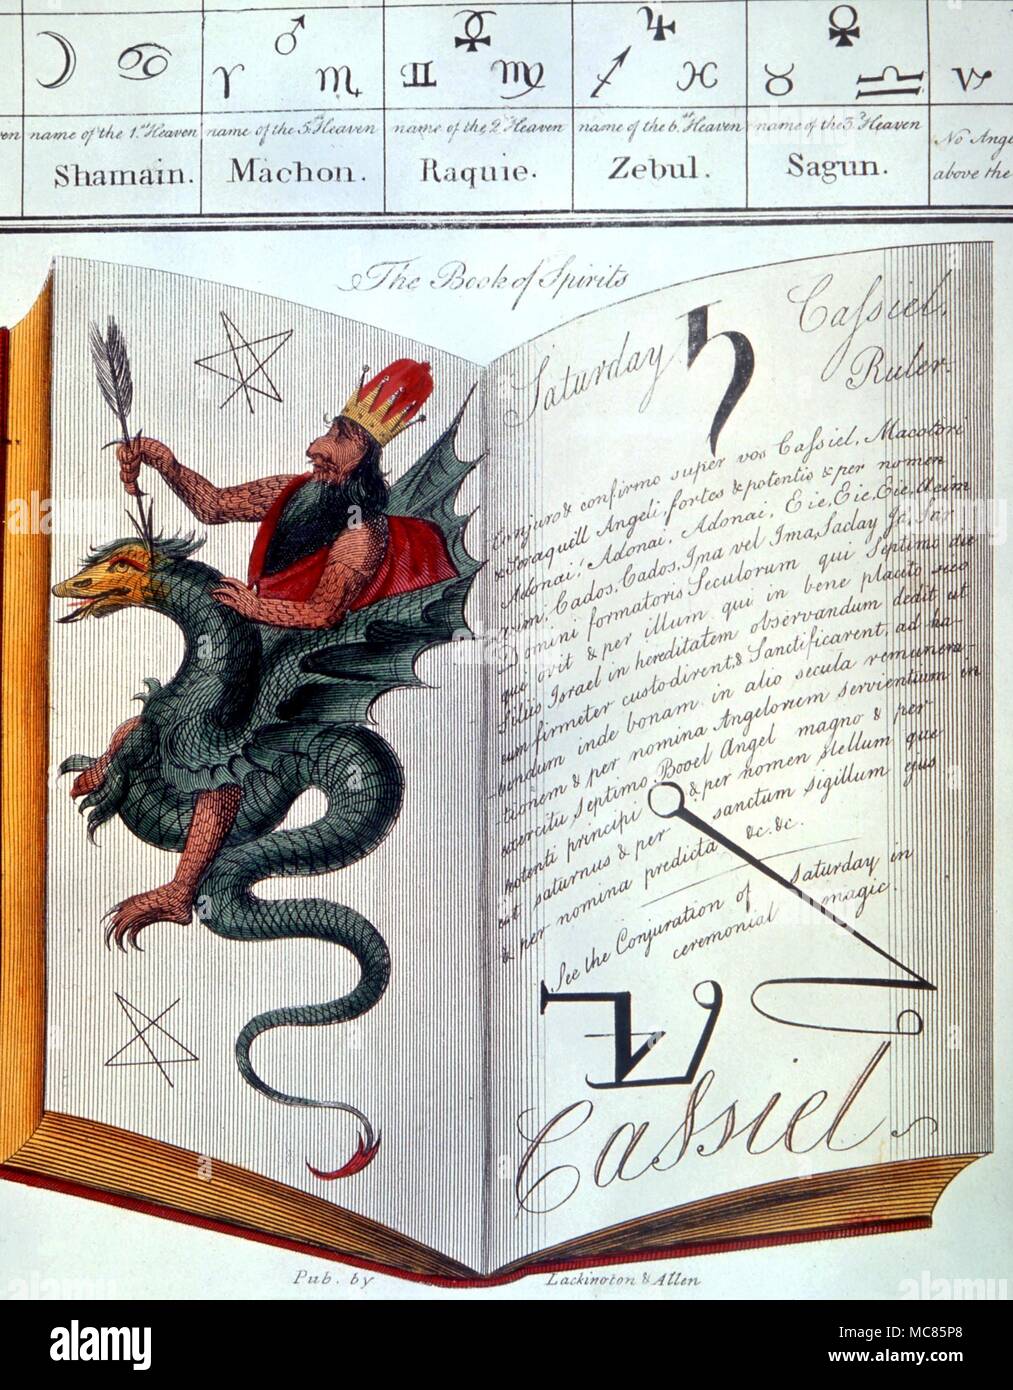 en name of the 1.st Heaven name of the 5.th Heaven name of the 2.d Heaven name of the 6.th Heaven name of the 3.d Heaven No Ange
Shamain. Machon. Raquie. Zebul. Sagun. above the
The Book of Spirits
Saturday ♄ Caſsiel,
Ruler.
Conjuro & confirmo super vos Caſsiel, Macotori
& Seraquiel Angeli, fortes & potentis & per nomen
Adonai, Adonai, Adonai, Eie, Eie, Eie, Acim
Cados, Cados, Ima vel Ima, Saday Ja, Sar
Domini formatoris Seculorum qui Septimo die
qui ovit & per illum qui in bene placito suo
filius Israel in hereditatem observandum dedit ut
eum firmeter custodirent, & Sanctificarent, ad ha-
bendum inde bonam in alio secula remunera-
tionem & per nomina Angelorum servientium in
exercitu Septimo Booel Angel magno &
potenti principi & per nomen stellum que
est saturnus & per sanctum sigillum ejus
& per nomina predicta &c. &c.
See the Conjuration of Saturday in
ceremonial magic.
Caſsiel.
Pub. by Lackington & Allen
alamy
Image ID: MC85P8
www.alamy.com